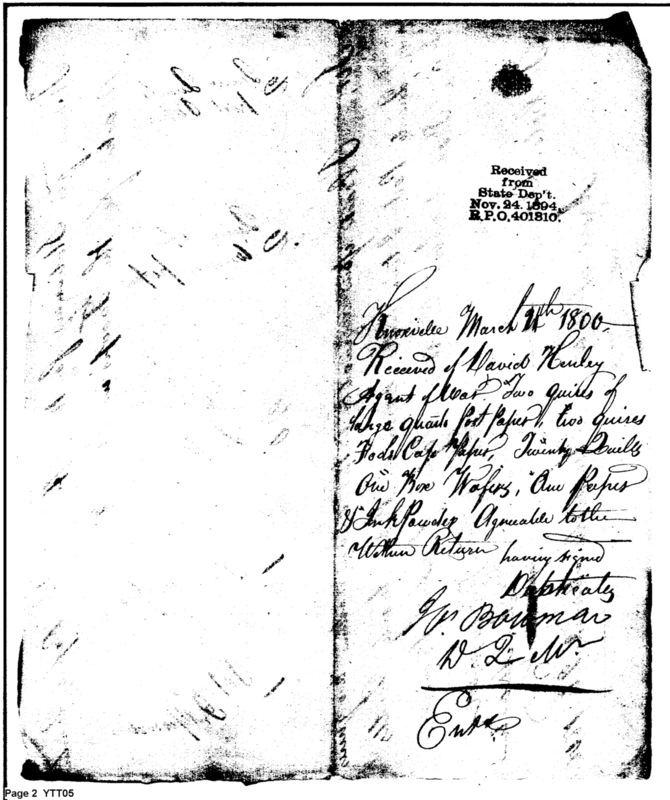 Received
from
State Dep't.
Nov. 24. 1894
R.P.O. 401810.
Knoxville March 1800
Received of David Henley
Agent of War Two quires of
large quarto Post Paper, two quires
Fools Cap Paper, Twenty Quills
One Box Wafers, One Paper
& Ink Powder Agreeable to the
Within Return having signed
Duplicates
Js Bowmar
D. Q Mr
Entd
Page 2 YTT05